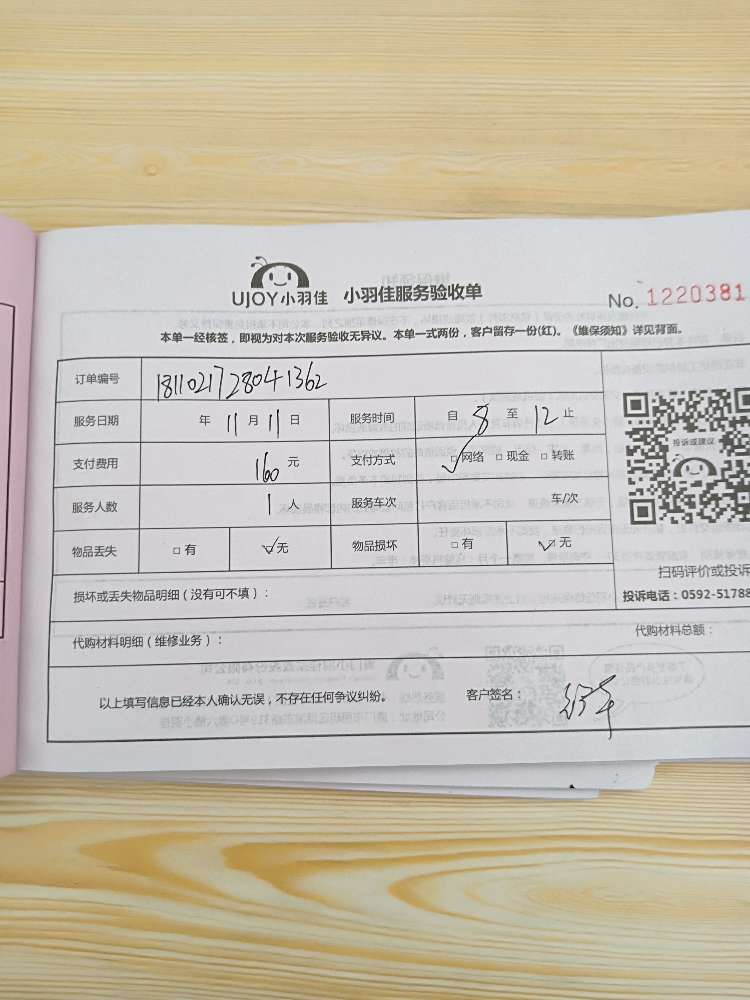 UJOY小羽佳 小羽佳服务验收单 No. 1220381
本单一经核签，即视为对本次服务验收无异议。本单一式两份，客户留存一份(红)。《维保须知》详见背面。
订单编号 1811021728041362
服务日期 年 11 月 11 日 服务时间 自 8 至 12 止
支付费用 160 元 支付方式 ☑网络 □现金 □转账
服务人数 1 人 服务车次 车/次
物品丢失 □有 ☑无 物品损坏 □有 ☑无
投诉或建议
扫码评价或投诉
投诉电话：0592-51788
损坏或丢失物品明细（没有可不填）：
代购材料明细（维修业务）： 代购材料总额：
以上填写信息已经本人确认无误，不存在任何争议纠纷。 客户签名：